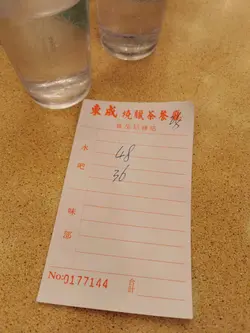 東成燒臘茶餐廳
水吧
48
36
味部
No:0177144
合計